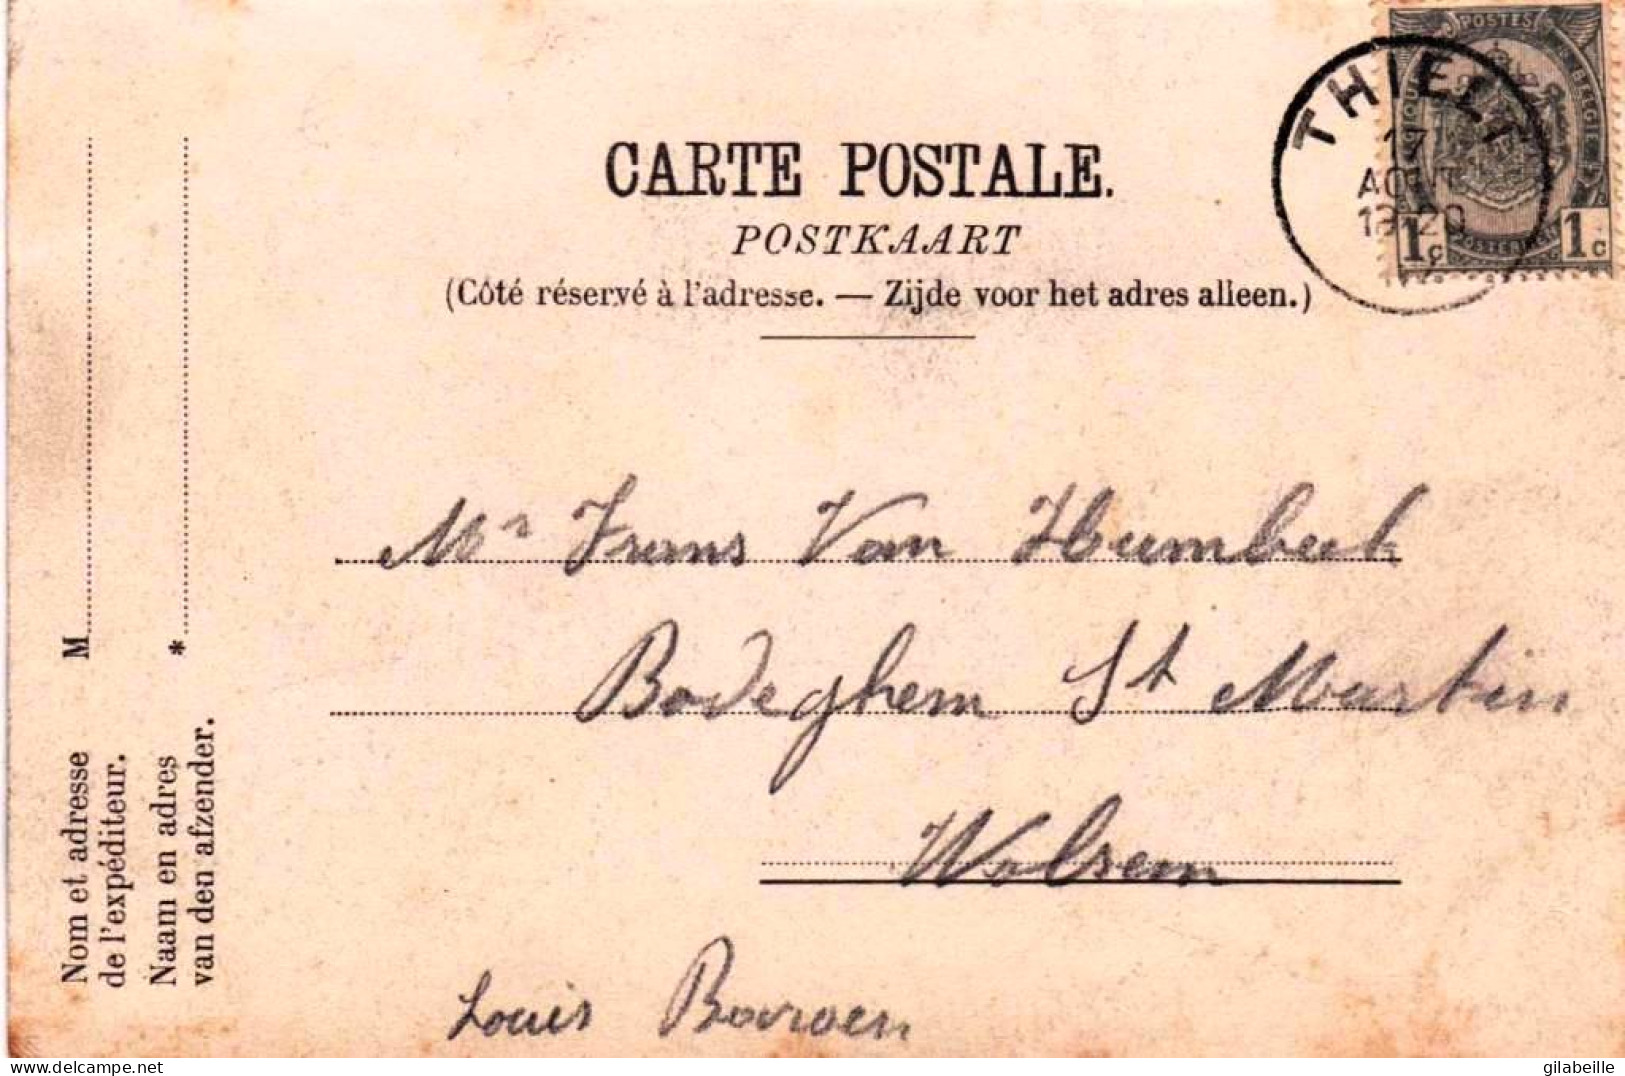 CARTE POSTALE.
POSTKAART
(Côté réservé à l'adresse. — Zijde voor het adres alleen.)
POSTES
BELGIE
1c 1c
THIELT
17
AOUT
Mr Frans Van Humbeek
Bodeghem St Martin
Wolsem
Louis
M
*
Nom et adresse
de l'expéditeur.
Naam en adres
van den afzender.
delcampe.net
gilabeille